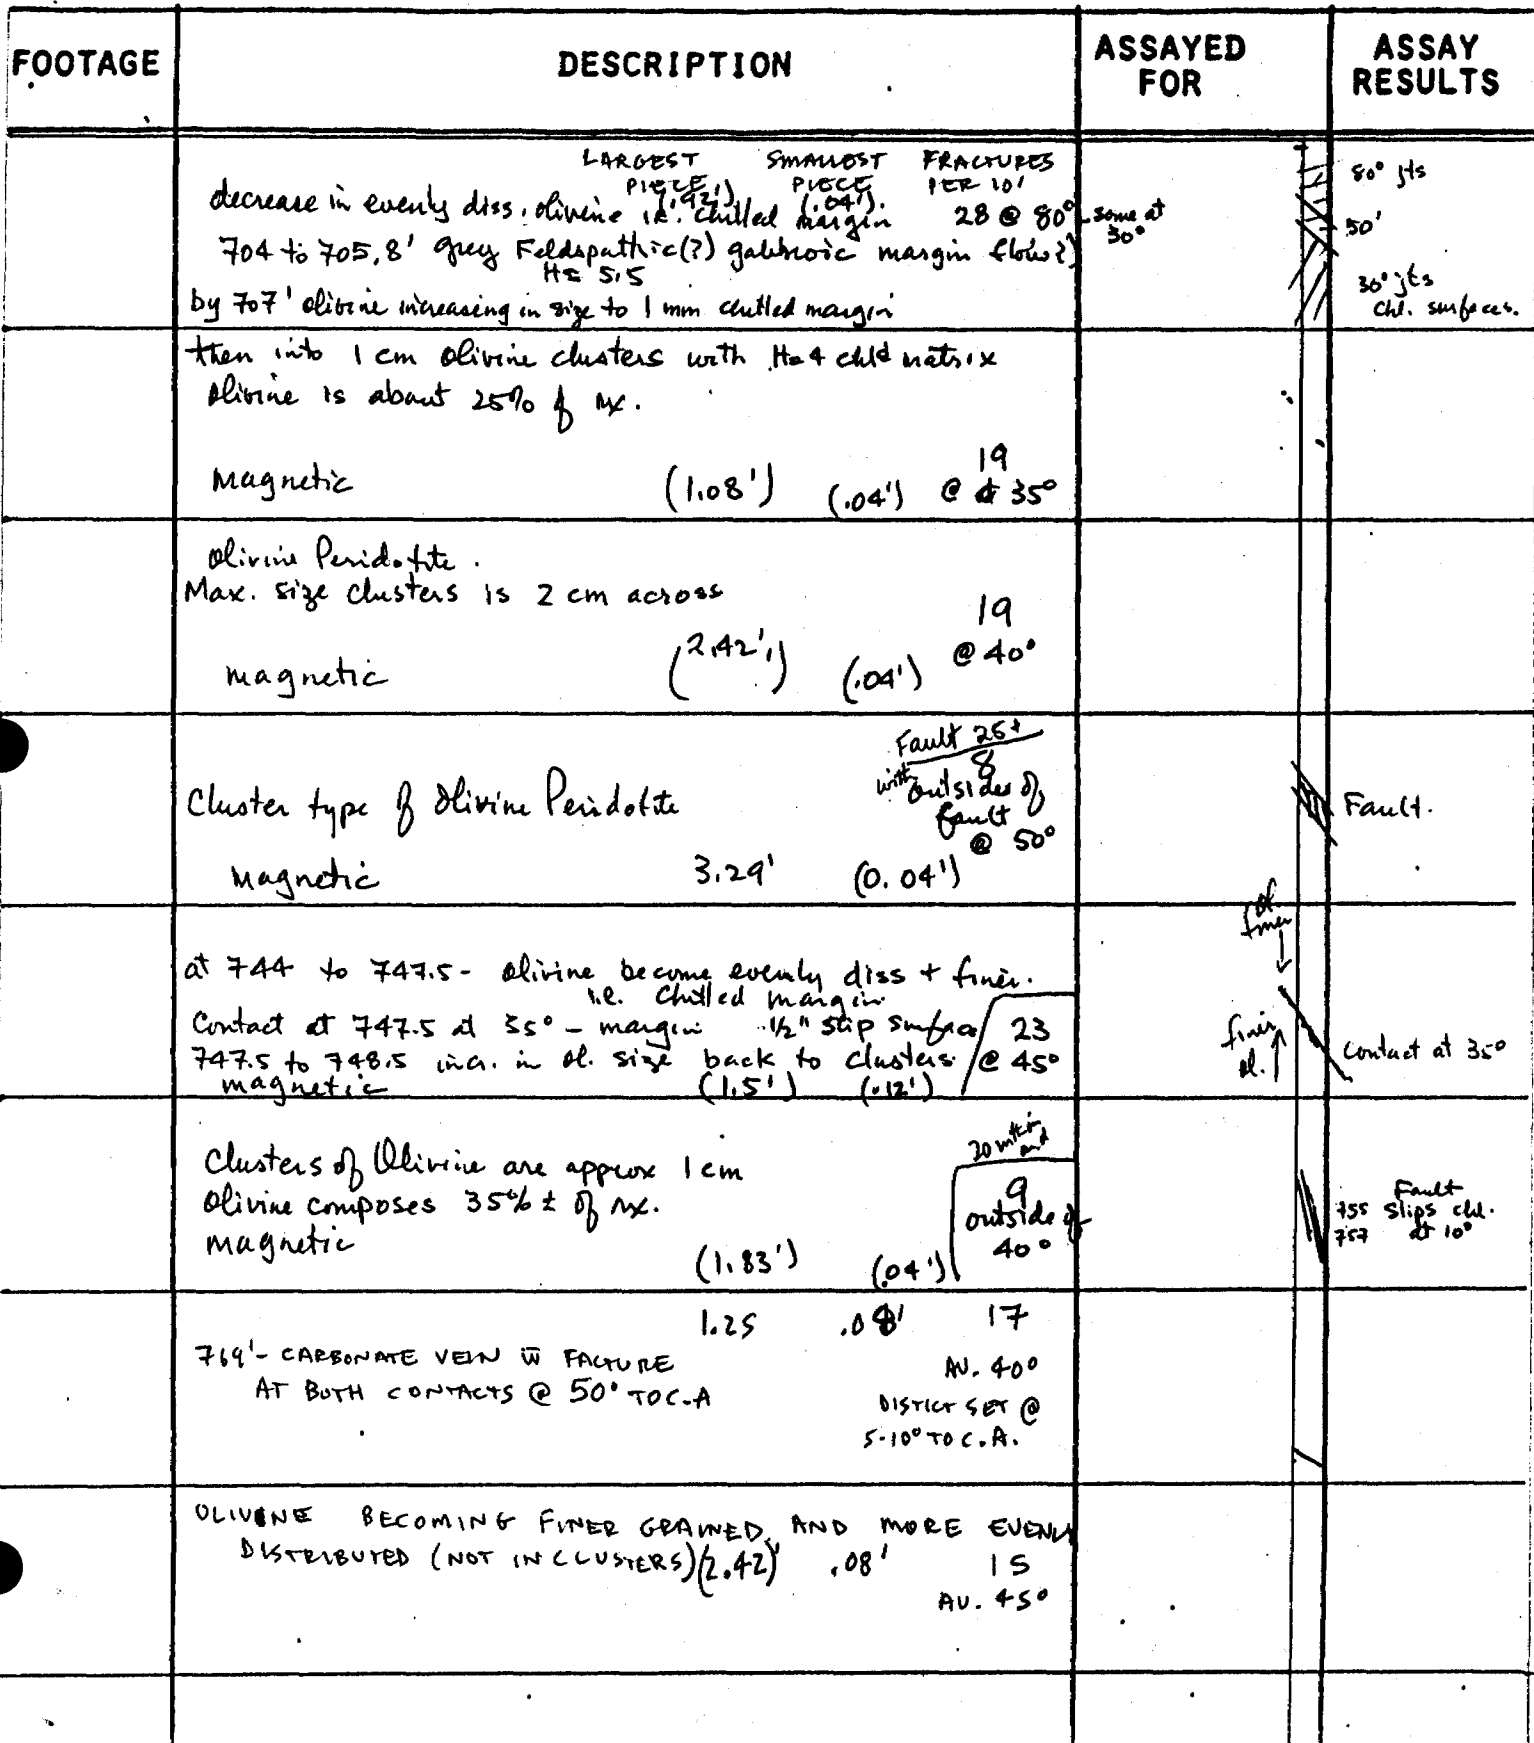 FOOTAGE DESCRIPTION ASSAYED FOR ASSAY RESULTS
LARGEST PIECE SMALLEST PIECE FRACTURES PER 10'
(.92') (.04').
decrease in evenly diss. olivine i.e. chilled margin 28 @ 80° some at 30°
704 to 705.8' grey Feldspathic(?) gabbroic margin flow?)
H= 5.5
by 707' olivine increasing in size to 1 mm chilled margin
80° jts
50'
30° jts
chl. surfaces.
then into 1 cm olivine clusters with H=4 chl'd matrix
olivine is about 25% of rx.
19
magnetic (1.08') (.04') @ 35°
olivine Peridotite.
Max. size clusters is 2 cm across
19
magnetic (2.42') (.04') @ 40°
Fault 25+
8
with outsides of
fault
@ 50°
Cluster type of Olivine Peridotite
Fault.
magnetic 3.29' (0.04')
ol. finer
at 744 to 747.5 - olivine become evenly diss + finer.
i.e. chilled margin
Contact at 747.5 at 35° - margin 1/2" slip surface 23
747.5 to 748.5 incr. in ol. size back to clusters. @ 45°
magnetic (1.5') (.12')
finer ol.
Contact at 35°
20 within and
Clusters of Olivine are approx 1 cm
9
Olivine composes 35% ± of rx.
outside of
40°
magnetic (1.83') (.04')
Fault
755 slips chl.
757 at 10°
1.25 .08' 17
769'- CARBONATE VEIN w̅ FACTURE AV. 40°
AT BOTH CONTACTS @ 50° TO C.A
DISTICT SET @
5-10° TO C.A.
OLIVINE BECOMING FINER GRAINED, AND MORE EVENLY
DISTRIBUTED (NOT IN CLUSTERS) (2.42)' .08' 15
AV. 45°